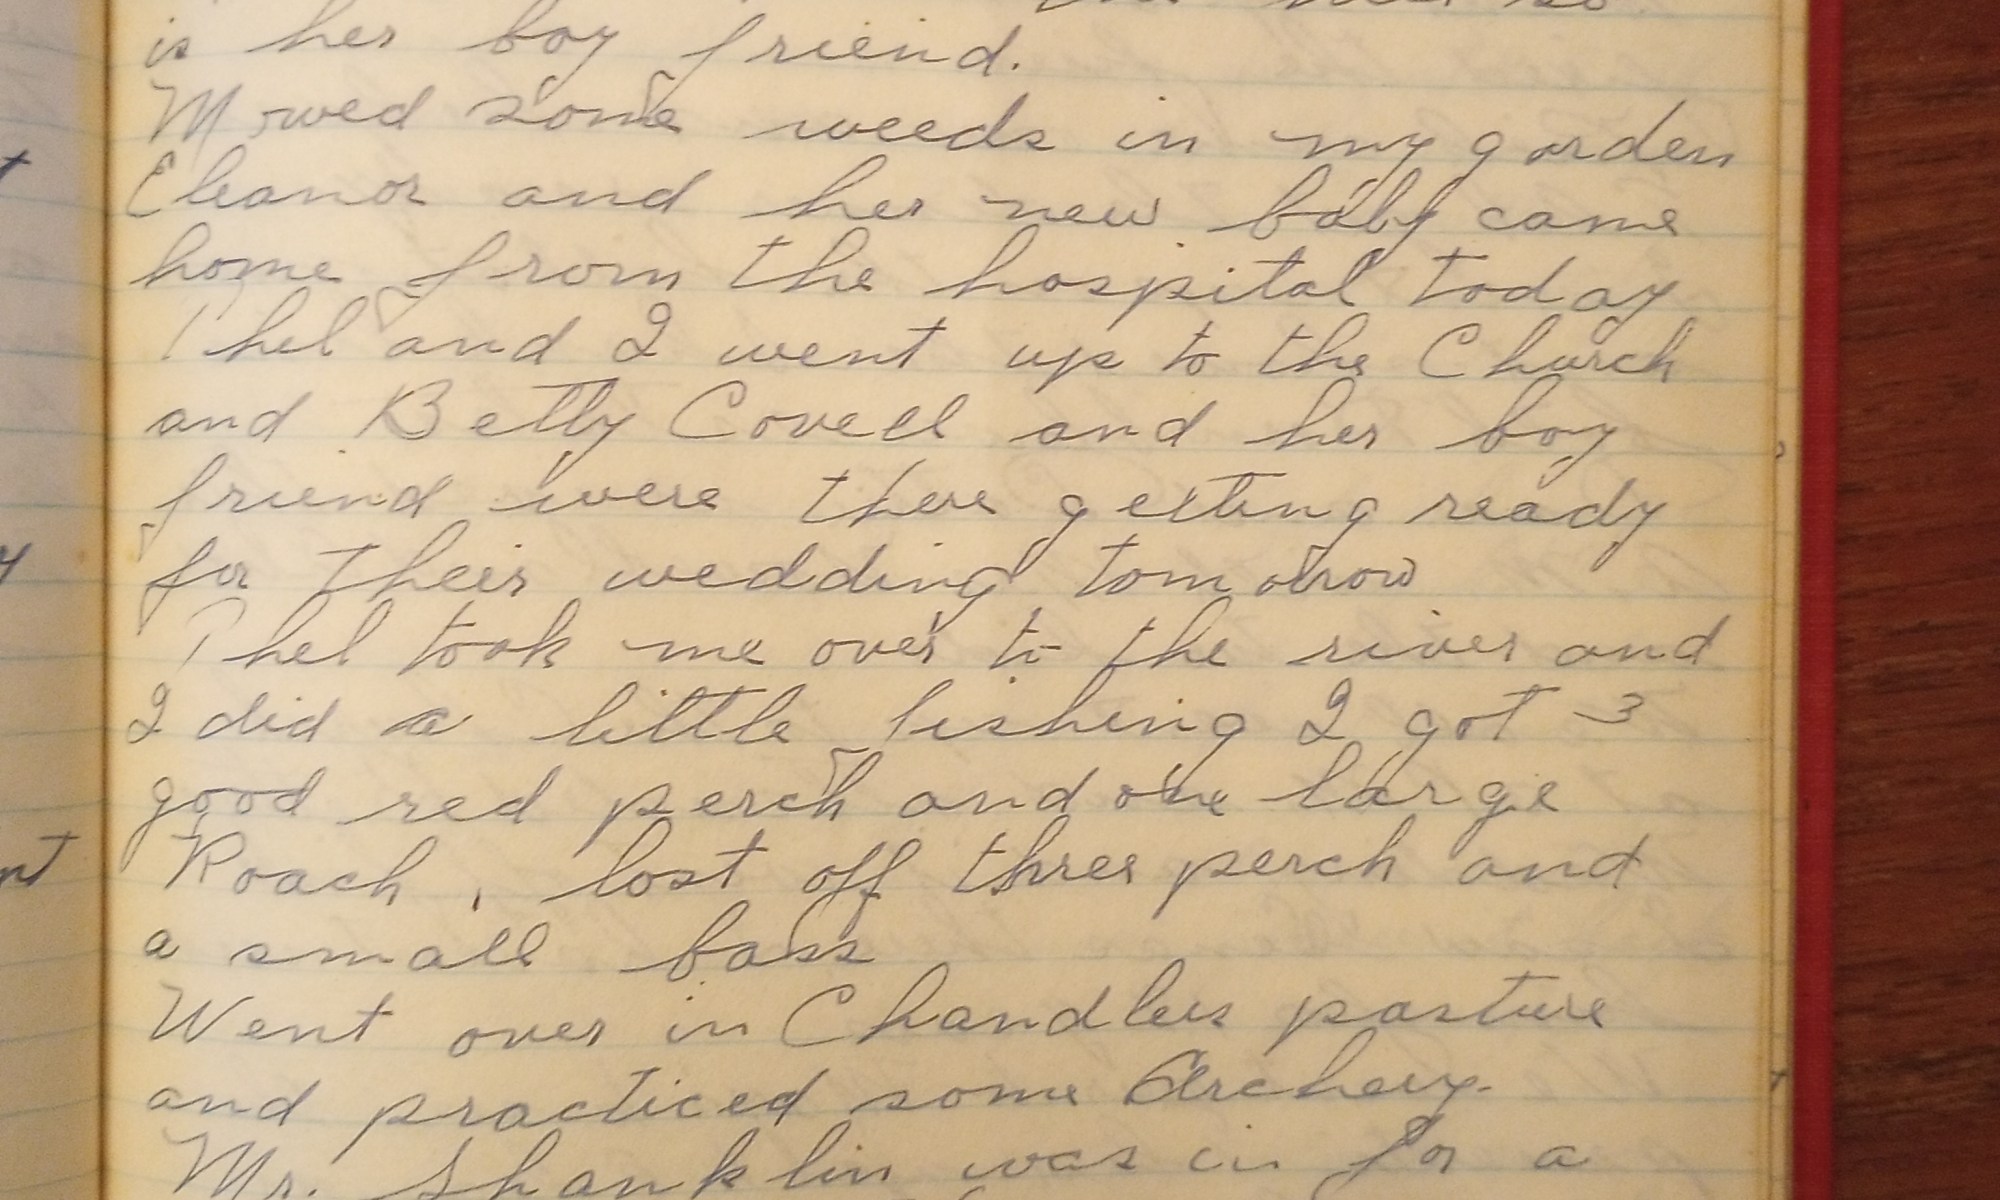 is her boy friend.
Mowed some weeds in my garden
Eleanor and her new baby came
home from the hospital today
Phel and I went up to the Church
and Betty Covell and her boy
friend were there getting ready
for their wedding tomorrow
Phel took me over to the river and
I did a little fishing I got 3
good red perch and one large
Roach, lost off three perch and
a small bass
Went over in Chandlers pasture
and practiced some Archery.
Mr. Shanklin was in for a